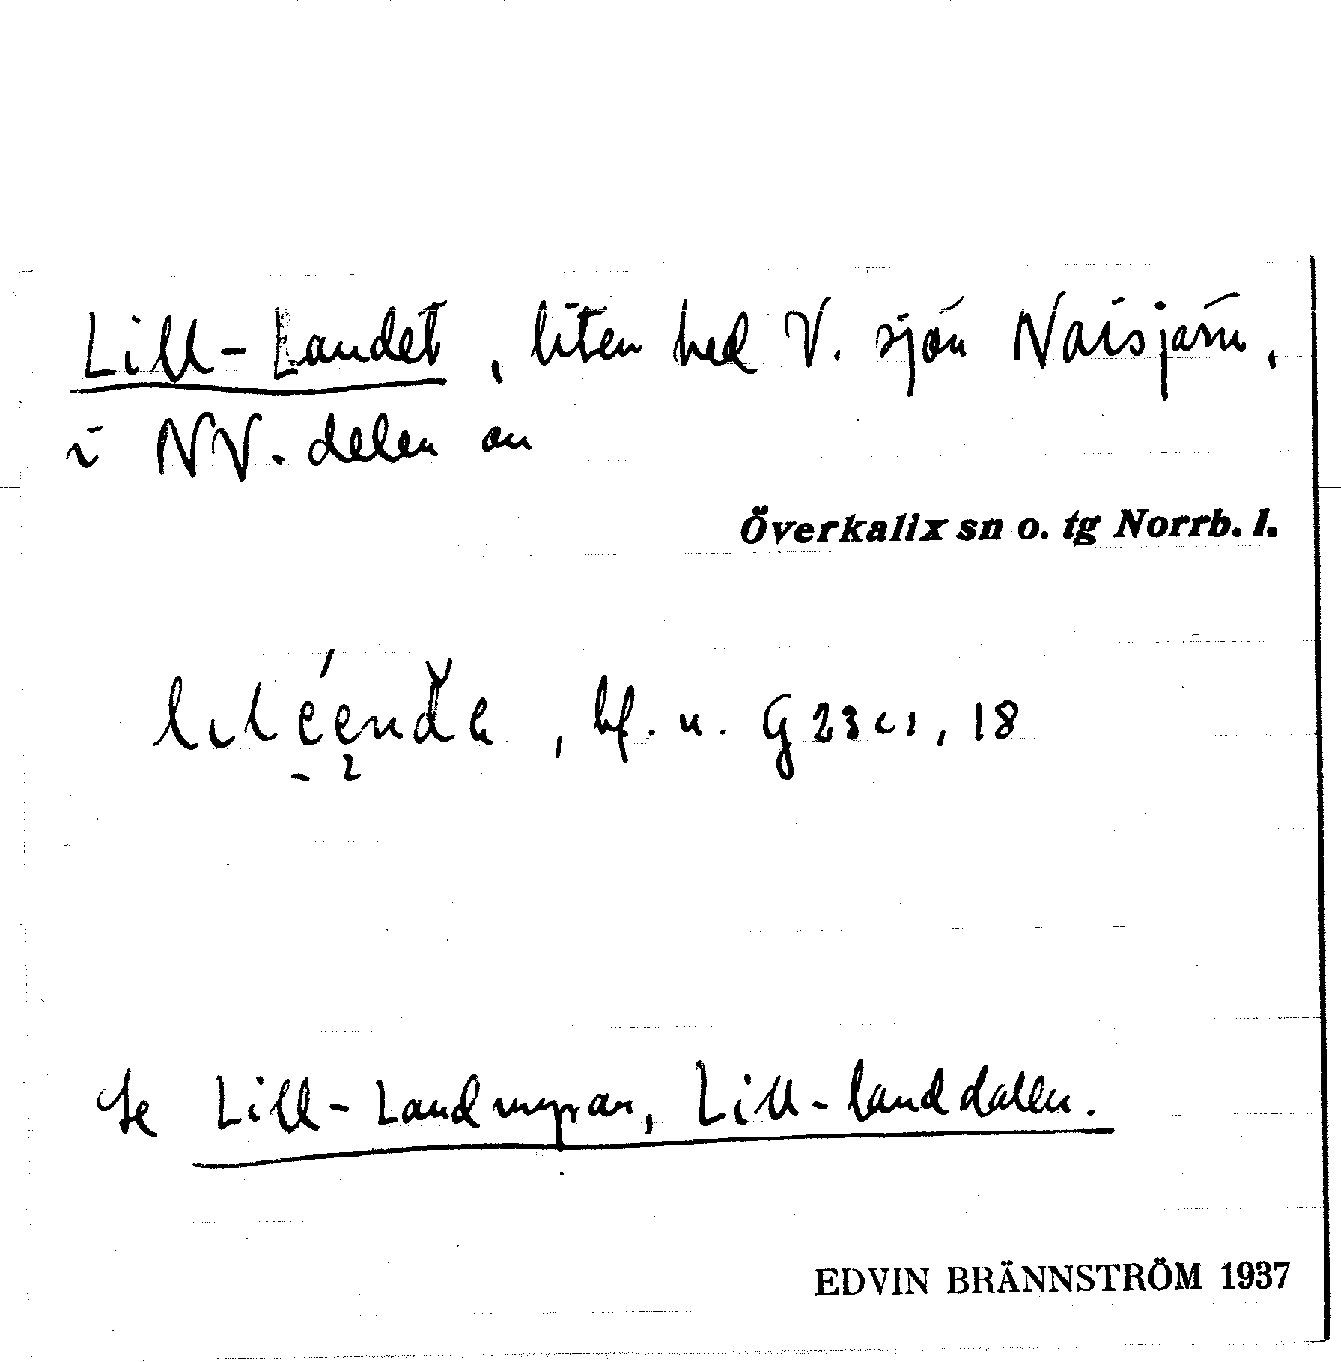 Lill-Landet, liten hed V. sjön Naisjärv,
i NV. delen av
Överkalix sn o. tg Norrb. l.
bf. u. G 23 c1, 18
Se Lill-Landmyran, Lill-landdalen.
EDVIN BRÄNNSTRÖM 1937